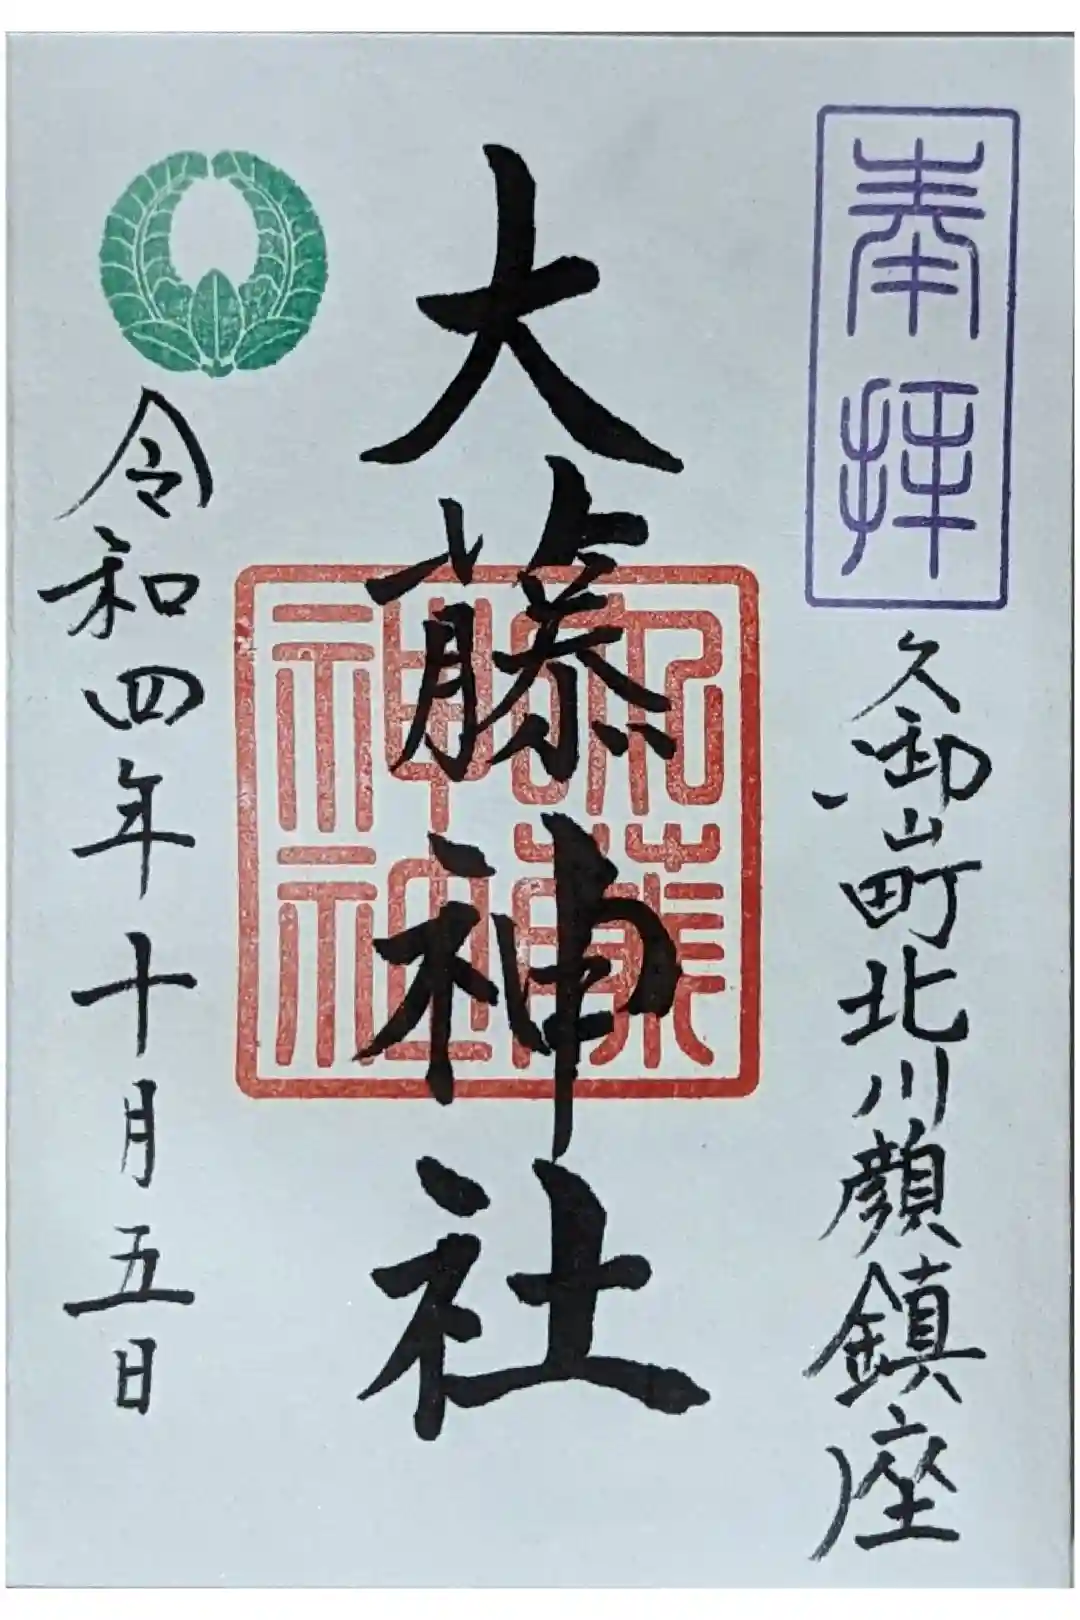 奉拝
久御山町北川顔鎮座
大藤神社
令和四年十月五日